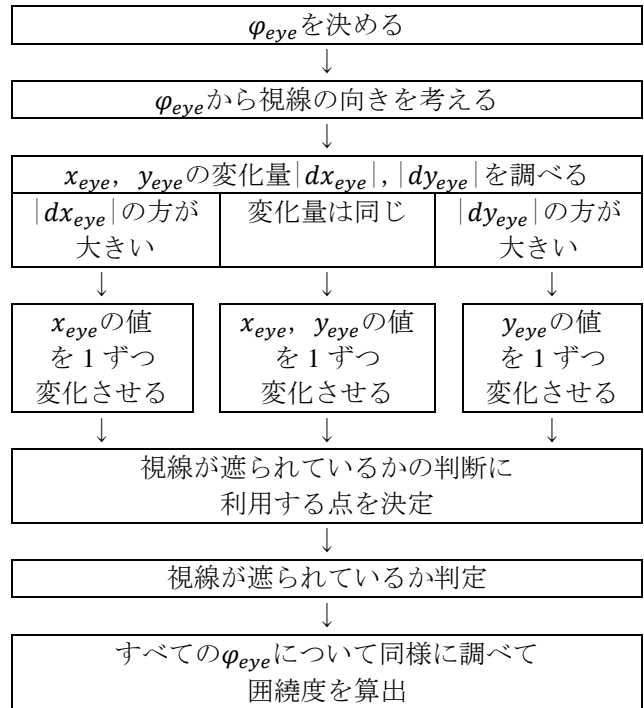 φ_eyeを決める
↓
φ_eyeから視線の向きを考える
↓
x_eye, y_eyeの変化量|dx_eye|, |dy_eye|を調べる
|dx_eye|の方が
大きい
変化量は同じ
|dy_eye|の方が
大きい
↓ ↓ ↓
x_eyeの値
を1ずつ
変化させる
x_eye, y_eyeの値
を1ずつ
変化させる
y_eyeの値
を1ずつ
変化させる
↓ ↓ ↓
視線が遮られているかの判断に
利用する点を決定
↓
視線が遮られているか判定
↓
すべてのφ_eyeについて同様に調べて
囲繞度を算出